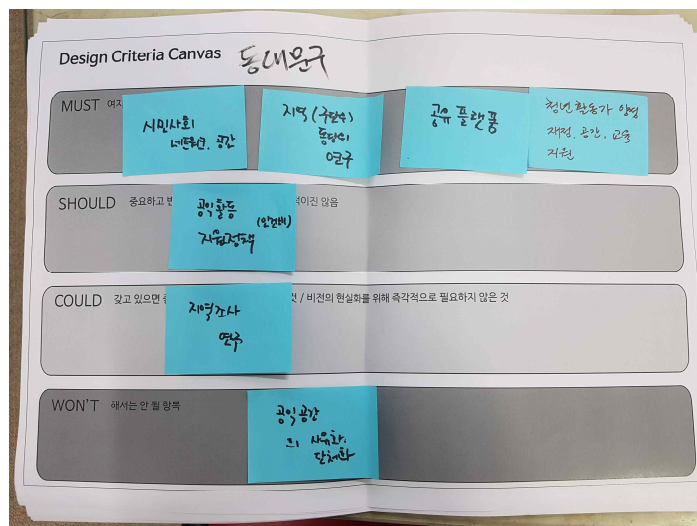 Design Criteria Canvas 동네문구
MUST 여지
시민사회
네트워크, 공간
지역 (구단위)
동단위
연구
공유 플랫폼
청년활동가 양성
재정, 공간, 교육
지원
SHOULD 중요하고 반 적이진 않음
공익활동
(인건비)
지원정책
COULD 갖고 있으면 것 / 비전의 현실화를 위해 즉각적으로 필요하지 않은 것
지역조사
연구
WON'T 해서는 안 될 항목
공익공간
의 사유화,
단체화